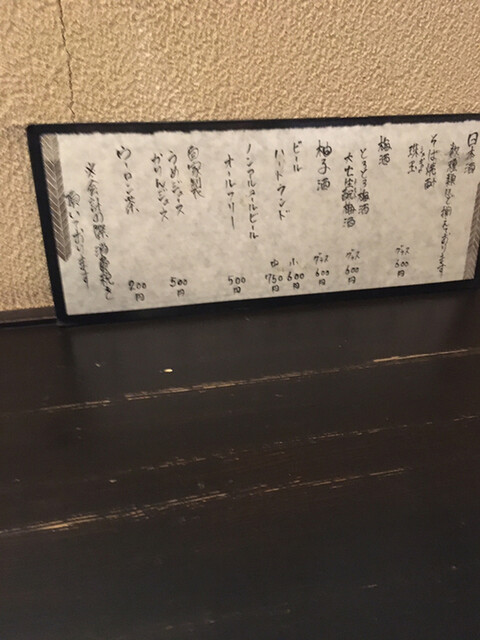 日本酒
数種類取り揃えております
そば焼酎
珠玉 グラス 600円
梅酒
とろとろ梅酒
大七生酛梅酒 グラス 600円
柚子酒 グラス 600円
ビール 小 600円
ハートランド 中 750円
ノンアルコールビール
オールフリー 500円
自家製
うめジュース 500円
かりんジュース
ウーロン茶 200円
願いします